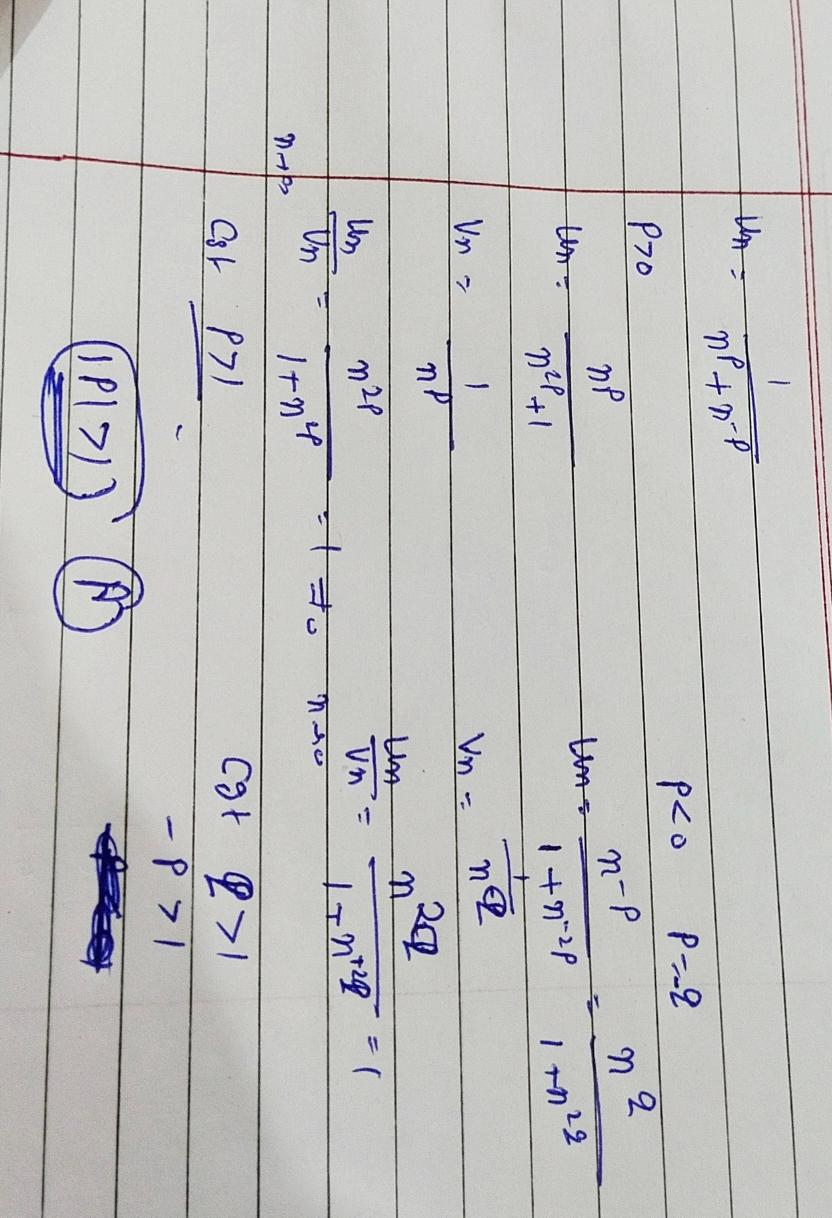 Un = 1/(n^p + n^-p)
p>0
Un = n^p/(n^2p + 1)
Vn = 1/n^p
Un/Vn = n^2p/(1 + n^2p) = 1 ≠ 0
n→∞
Cgt p>1
p<0 p=-q
Un = n^-p/(1 + n^-2p) = n^q/(1 + n^2q)
Vn = 1/n^q
Un/Vn = n^2q/(1 + n^+2q) = 1
n→∞
Cgt q>1
-p>1
|p|>1}